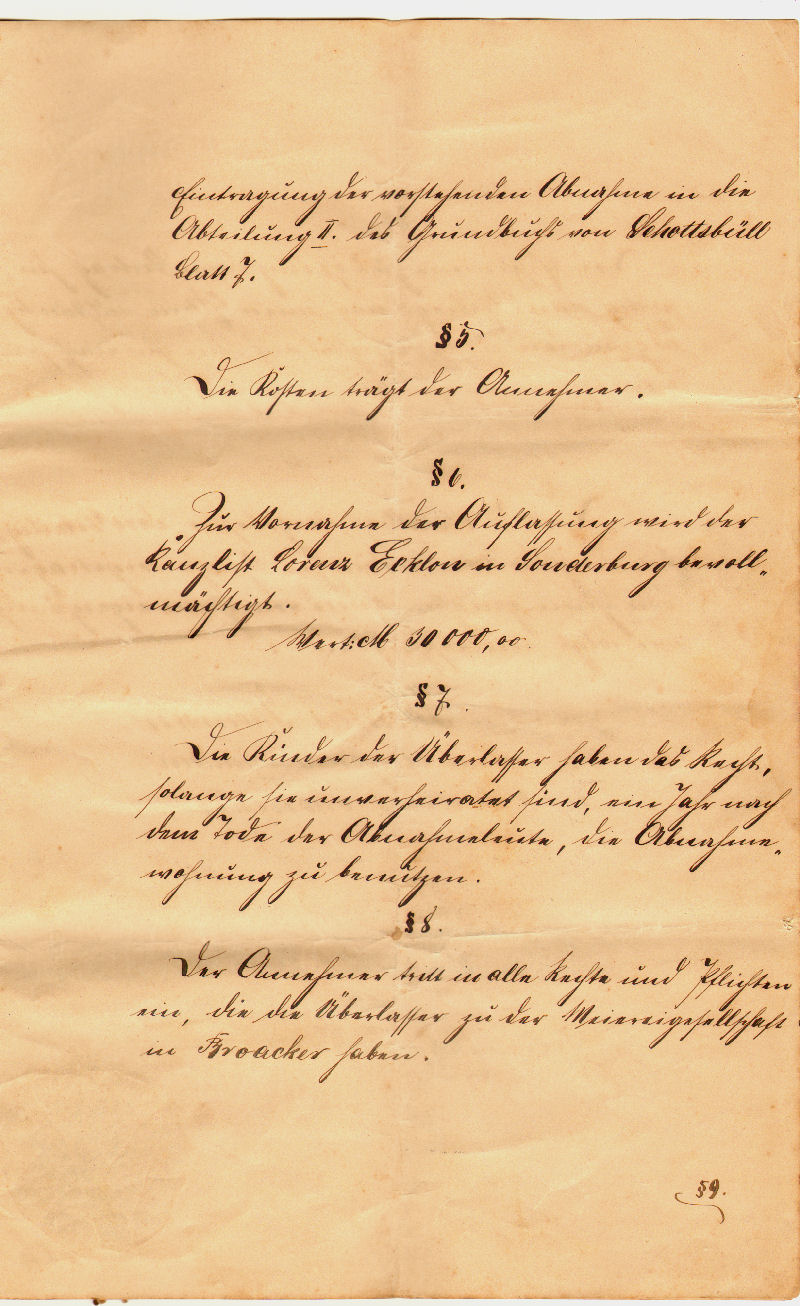 Eintragung der vorstehenden Abnahme in die
Abteilung II. des Grundbuchs von Schottsbüll
Blatt 7.
§ 5.
Die Kosten trägt der Annehmer.
§ 6.
Zur Vornahme der Auflassung wird der
Kanzlist Lorenz Ecklon in Sonderburg bevoll„
mächtigt.
Wert: M 30 000,00.
§ 7.
Die Kinder der Überlasser haben das Recht,
solange sie unverheiratet sind, ein Jahr nach
dem Tode der Abnahmeleute, die Abnahme„
wohnung zu benutzen.
§ 8.
Der Annehmer tritt in alle Rechte und Pflichten
ein, die die Überlasser zu der Meiereigesellschaft
in Broacker haben.
§ 9.